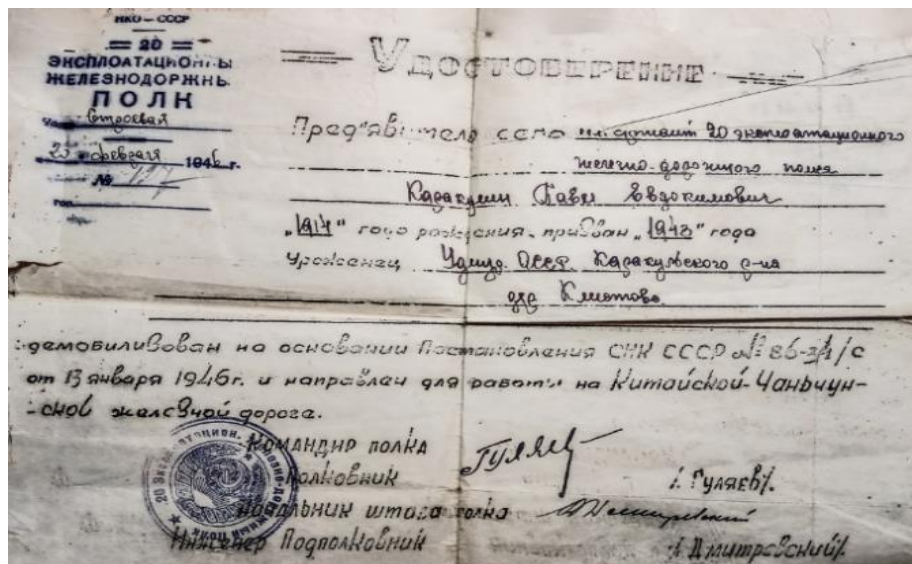 НКО – СССР
== 20 ==
ЭКСПЛОАТАЦИОННЫ
ЖЕЛЕЗНОДОРЖНЬ
ПОЛК
Строевая
23 февраля 1946 г.
№
УДОСТОВЕРЕНИЕ
Пред'явитель сего 20 эксплоатационного
железно-дорожного полка
Каракулин Павел Евдокимович
"1914" года рождения, призван "1943" года
Уроженец АССР Каракулинского р-на
дер
демобилизован на основании Постановления СНК СССР №
от 13 января 1946г. и направлен для работы на Китайской-Чаньчун-
-ской железной дороге.
Командир полка
Полковник /. Гуляев/.
Начальник штаба полка
Инженер Подполковник /. Дмитровский/.
20 Эксплоатацион. железно-дорожный полк